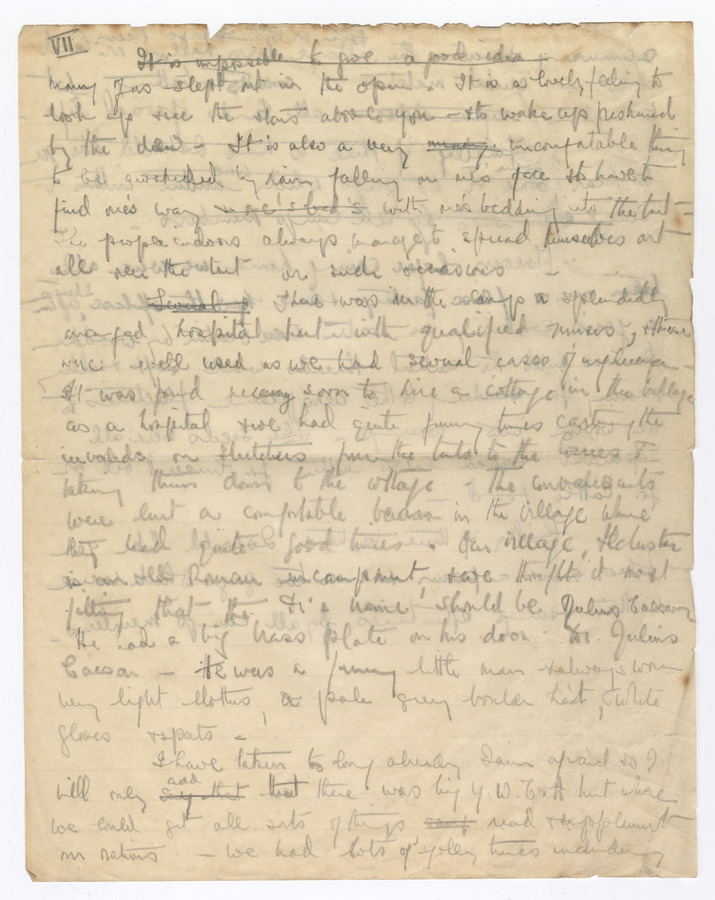 VII
It is impossible to give a good idea
many of us slept out in the open. It is a lovely feeling to
look up see the stars above you – & to wake up freshened
by the dew – It is also a very uncomfortable thing
to be awakened by rain falling on one's face & to have to
find one's way with one's bedding into the tent –
The people indoors always manage to spread themselves out
all over the tent on such occasions
Several There was in the camp a splendidly
arranged hospital tent with qualified nurses, & these
were well used as we had several cases of influenza –
It was found necessary soon to hire a cottage in the village
as a hospital & we had quite funny times carting the
invalids on stretchers from the tents to the &
taking them down to the cottage – The convalescents
were lent a comfortable in the village where
they had quite good times. Our village, Ilchester
is an old Roman encampment, & we thought it most
fitting that the name should be Julius Caesar
He had a big brass plate on his door. Dr. Julius
Caesar – He was a funny little man & always wore
very light clothes, a pale grey bowler hat, & white
gloves & spats –
I have taken to long already I am afraid so I
will only say that add that there was big Y.W.C.A hut where
we could get all sorts of things read & supplement
our rations – we had lots of jolly times including